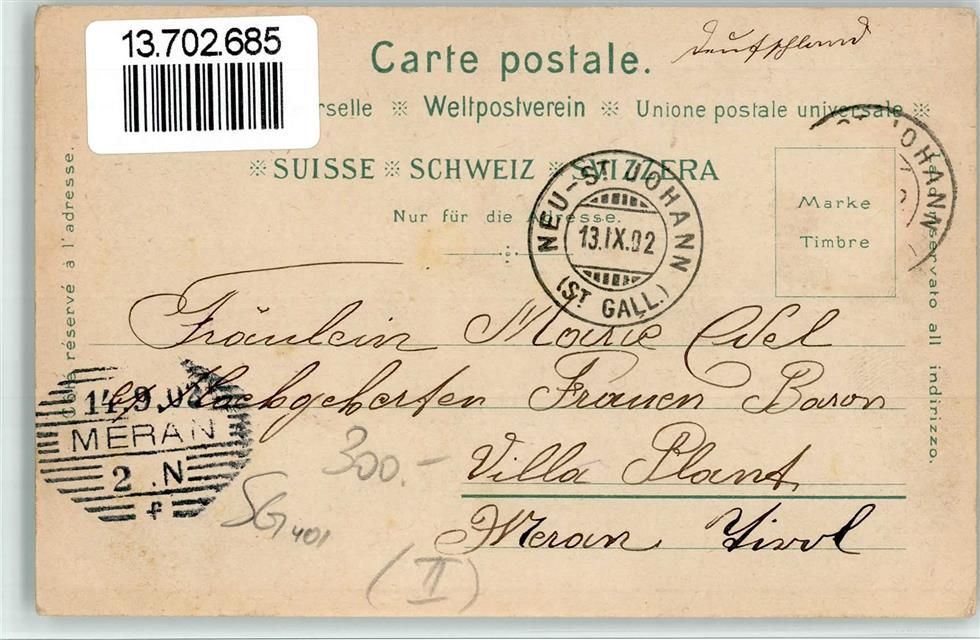 13.702.685
Carte postale.
Deutschland
rselle ※ Weltpostverein ※ Unione postale universale ※
※ SUISSE ※ SCHWEIZ ※ SVIZZERA
Nur für die Adresse.
Marke
Timbre
Côté réservé à l'adresse.
Lato riservato all indirizzo.
NEU-ST JOHANN
13.IX.02
(ST. GALL.)
ST JOHANN
Fräulein Marie Edel
Hochgeberten Frauen Baron
Villa Plant
Meran Tirol
14.9.02
MERAN
2 .N
f
300.-
SG 401
(II)